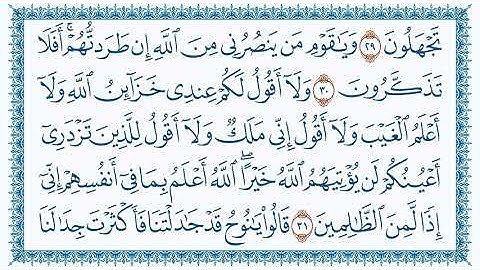 تَجْهَلُونَ ٢٩ وَيَٰقَوْمِ مَن يَنصُرُنِي مِنَ ٱللَّهِ إِن طَرَدتُّهُمْۚ أَفَلَا
تَذَكَّرُونَ ٣٠ وَلَآ أَقُولُ لَكُمْ عِندِى خَزَآئِنُ ٱللَّهِ وَلَآ
أَعْلَمُ ٱلْغَيْبَ وَلَآ أَقُولُ إِنِّى مَلَكٌ وَلَآ أَقُولُ لِلَّذِينَ تَزْدَرِىٓ
أَعْيُنُكُمْ لَن يُؤْتِيَهُمُ ٱللَّهُ خَيْرًاۖ ٱللَّهُ أَعْلَمُ بِمَا فِىٓ أَنفُسِهِمْ إِنِّىٓ
إِذًا لَّمِنَ ٱلظَّٰلِمِينَ ٣١ قَالُوا۟ يَٰنُوحُ قَدْ جَٰدَلْتَنَا فَأَكْثَرْتَ جِدَٰلَنَا